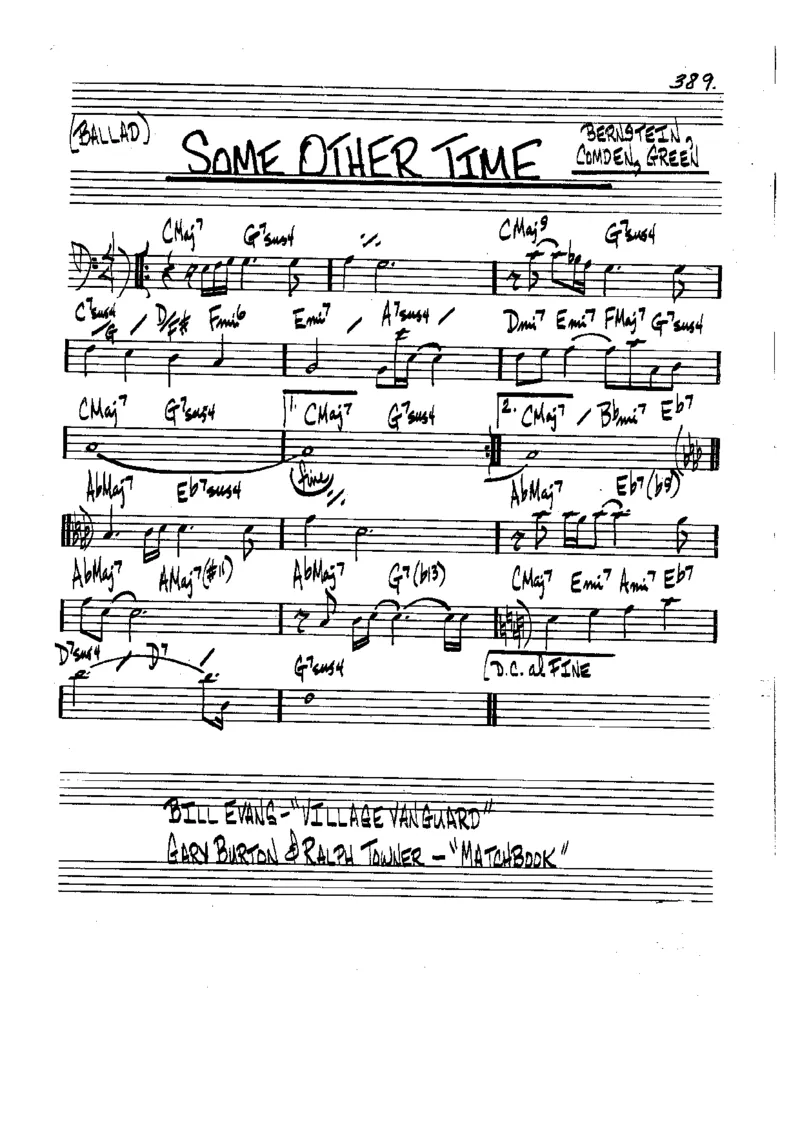 389.
(BALLAD)
SOME OTHER TIME
BERNSTEIN,
COMDEN, GREEN
CMaj7 G7sus4 CMaj9 G7sus4
C7sus4/G / D/F# Fmi6 Emi7 / A7sus4 / Dmi7 Emi7 FMaj7 G7sus4
CMaj7 G7sus4 1. CMaj7 G7sus4 2. CMaj7 / Bbmi7 Eb7
(fine)
AbMaj7 Eb7sus4 AbMaj7 Eb7(b9)
AbMaj7 AMaj7(#11) AbMaj7 G7(b13) CMaj7 Emi7 Ami7 Eb7
D7sus4 / D7 / G7sus4 D.C. al FINE
BILL EVANS - "VILLAGE VANGUARD"
GARY BURTON & RALPH TOWNER - "MATCHBOOK"